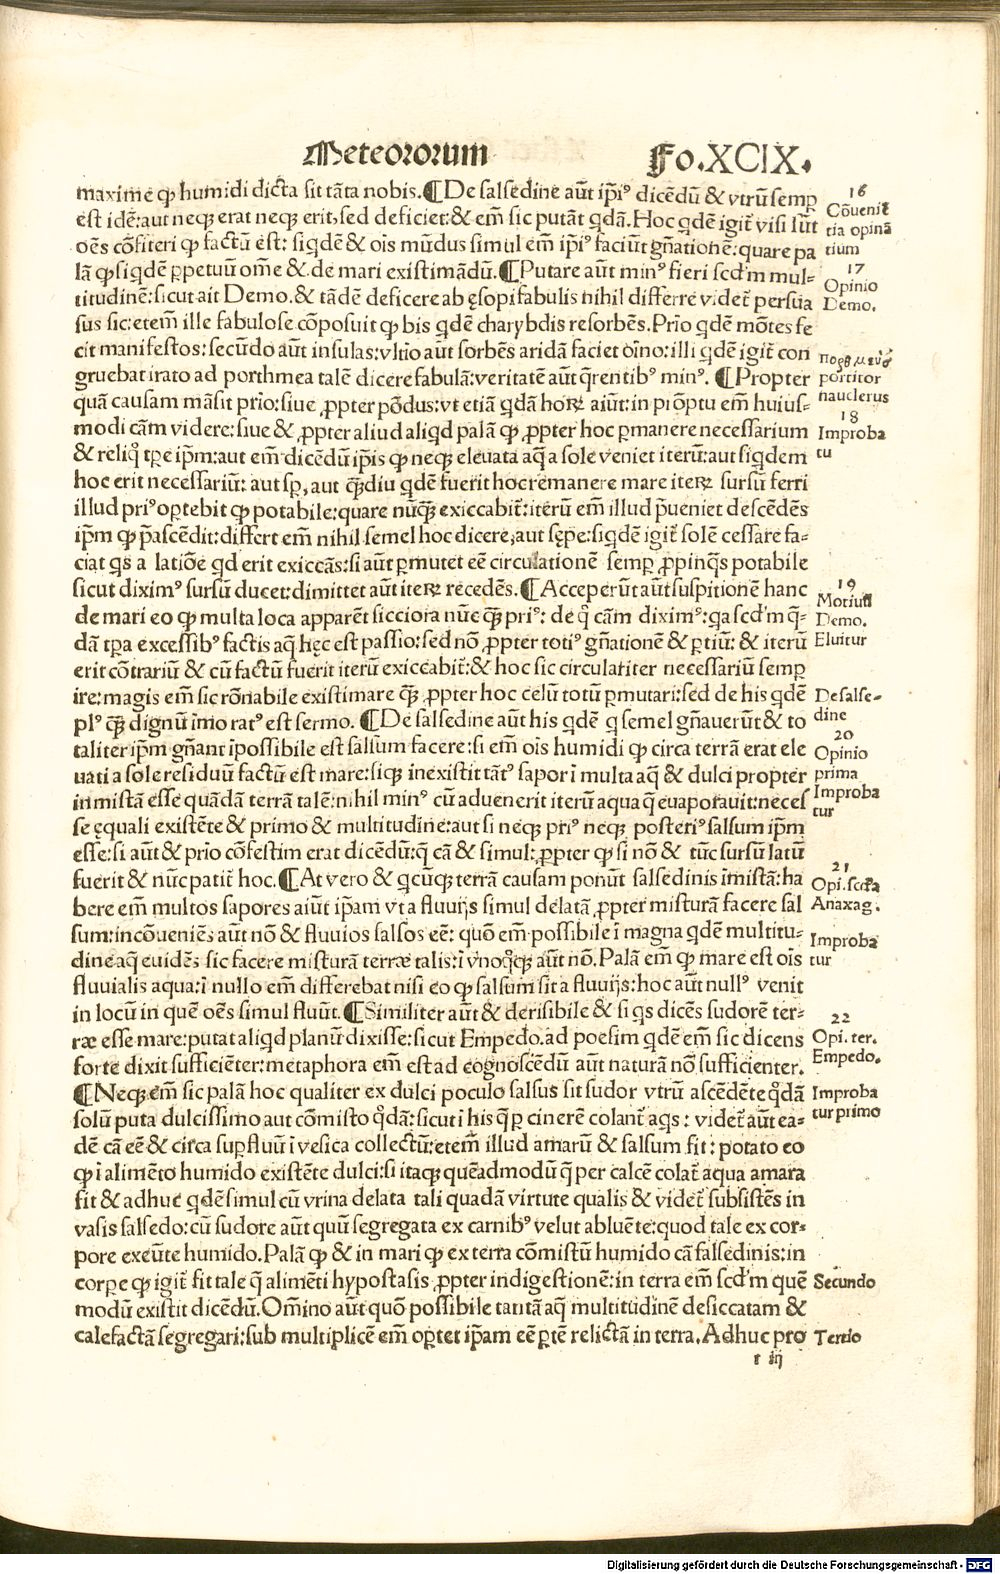 Meteororum Fo.XCIX.
maxime ꝙ humidi dicta sit tãta nobis.¶De salsedine aũt ip̃iꝰ dicẽdũ & vtrũ semꝑ
est idẽ:aut neqꝫ erat neqꝫ erit,sed deficiet:& em̃ sic putãt qdã.Hoc qdẽ igit̃ visi sũt
oẽs cõfiteri ꝙ factũ est: siqdẽ & oĩs mũdus simul em̃ ip̃iꝰ faciũt gñationẽ:quare pa
lã ꝙ siqdẽ ꝑpetuũ om̃e & de mari existimãdũ.¶Putare aũt minꝰ fieri scd'm mul⸗
titudinẽ:sicut ait Demo.& tãdẽ deficere ab ęsopi fabulis nihil differre videt̃ persua
sus sic:etem̃ ille fabulose cõposuit ꝙ bis qdẽ charybdis resorbẽs.Prĩo qdẽ mõtes fe
cit manifestos:secũdo aũt insulas:vltĩo aũt sorbẽs aridã faciet oĩno:illi qdẽ igit̃ con
gruebat irato ad porthmea talẽ dicere fabulã:veritatẽ aũt q̃rentibꝰ minꝰ. ¶Propter
quã causam mãsit prĩo:siue ꝓpter põdus:vt etiã qdã hoꝝ aiũt:in prõptu em̃ huius⸗
modi cãm videre:siue & ꝓpter aliud aliqd palã ꝙ ꝓpter hoc ꝑmanere necessarium
& reliq̃ tꝑe ip̃m:aut em̃ dicẽdũ ip̃is ꝙ neqꝫ eleuata aq̃ a sole veniet iterũ:aut siqdem
hoc erit necessariũ: aut sꝑ, aut q̃ꝫdiu qdẽ fuerit hoc remanere mare iteꝝ sursũ ferri
illud priꝰ oꝑtebit ꝙ potabile:quare nũq̃ꝫ exiccabit̃:iterũ em̃ illud p̃ueniet descẽdẽs
ip̃m ꝙ p̃ascẽdit:differt em̃ nihil semel hoc dicere,aut sępe:siqdẽ igit̃ solẽ cessare fa⸗
ciat qs a latiõe qd erit exiccãs:si aũt ꝑmutet eẽ circulationẽ semꝑ ꝓpinq̃s potabile
sicut diximꝰ sursũ ducet:dimittet aũt iteꝝ recedẽs.¶Acceperũt aũt suspitionẽ hanc
de mari eo ꝙ multa loca apparẽt sicciora nũc q̃ꝫ priꝰ: de q̃ cãm diximꝰ:qa scd'm q̃⸗
dã tꝑa excessibꝰ factis aq̃ hęc est passio:sed nõ ꝓpter totiꝰ gñationẽ & ꝑtiũ: & iterũ
erit cõtrariũ & cũ factũ fuerit iterũ exiccabit̃:& hoc sic circulariter necessariũ semꝑ
ire:magis em̃ sic rõnabile existimare q̃ꝫ ꝓpter hoc celũ totũ ꝑmutari:sed de his qdẽ
plꝰ q̃ꝫ dignũ ĩmo ratꝰ est sermo. ¶De salsedine aũt his qdẽ q semel gñauerũt & to
taliter ip̃m gñant ĩpossibile est salsum facere:si em̃ oĩs humidi ꝙ circa terrã erat ele
uati a sole residuũ factũ est mare:siqꝫ inexistit tãtꝰ sapor ĩ multa aq̃ & dulci propter
inmistã esse quãdã terrã talẽ:nihil minꝰ cũ aduenerit iterũ aqua q̃ euaporauit:neces
se ęquali existẽte & primo & multitudine:aut si neqꝫ priꝰ neqꝫ posteriꝰ salsum ip̃m
esse:si aũt & prĩo cõfestim erat dicẽdũ:q̃ cã & simul:ꝓpter ꝙ si nõ & tũc sursũ latũ
fuerit & nũc patit̃ hoc.¶At vero & qcũqꝫ terrã causam ponũt salsedinis ĩmistã:ha
bere em̃ multos sapores aiũt ip̃am vt a fluuijs simul delatã ꝓpter misturã facere sal
sum:incõueniẽs aũt nõ & fluuios salsos eẽ: quõ em̃ possibile ĩ magna qdẽ multitu⸗
dine aq̃ euidẽs sic facere misturã terræ talis:ĩ vnoq̃qꝫ aũt nõ.Palã em̃ ꝙ mare est oĩs
fluuialis aqua:ĩ nullo em̃ differebat nisi eo ꝙ salsum sit a fluuijs:hoc aũt nullꝰ venit
in locũ in quẽ oẽs simul fluũt.¶Similiter aũt & derisibile & si qs dicẽs sudorẽ ter⸗
ræ esse mare:putat aliqd planũ dixisse:sicut Empedo.ad poesim qdẽ em̃ sic dicens
forte dixit sufficiẽter:metaphora em̃ est ad cognoscẽdũ aũt naturã nõ sufficienter.
¶Neqꝫ em̃ sic palã hoc qualiter ex dulci poculo salsus sit sudor vtrũ ascẽdẽte q̃dã
solũ puta dulcissimo aut cõmisto q̃dã:sicut ĩ his q̃ ꝑ cinerẽ colant̃ aqs: videt̃ aũt ea⸗
dẽ cã eẽ & circa suꝑfluũ ĩ vesica collectũ:etem̃ illud amarũ & salsum fit: potato eo
ꝙ ĩ alimẽto humido existẽte dulci:si itaqꝫ quẽadmodũ q̃ per calcẽ colat̃ aqua amara
fit & adhuc qdẽ simul cũ vrina delata tali quadã virtute qualis & videt̃ subsistẽs in
vasis salsedo:cũ sudore aũt quũ segregata ex carnibꝰ velut abluẽte:quod tale ex cor⸗
pore exeũte humido.Palã ꝙ & in mari ꝙ ex terra cõmistũ humido cã salsedinis:in
corpe ꝙ igit̃ fit tale q̃ alimẽti hypostasis ꝓpter indigestionẽ:in terra em̃ scd'm quẽ
modũ existit dicẽdũ.Om̃ino aũt quõ possibile tantã aq̃ multitudinẽ desiccatam &
calefactã segregari:sub multiplicẽ em̃ oꝑtet ip̃am eẽ ꝑtẽ relictã in terra.Adhuc pro
r iij
16
Cõuenit̃
tia opinã
tium
17
Opinio
Demo.
portitor
nauclerus
18
Improba
tu
19
Motiuũ
Demo.
Eluitur
De salse⸗
dine
20
Opinio
prima
Improba
tur
21
Opi.scd'a
Anaxag.
Improba
tur
22
Opi.ter.
Empedo.
Improba
tur primo
Secundo
Tertio
Digitalisierung gefördert durch die Deutsche Forschungsgemeinschaft - DFG